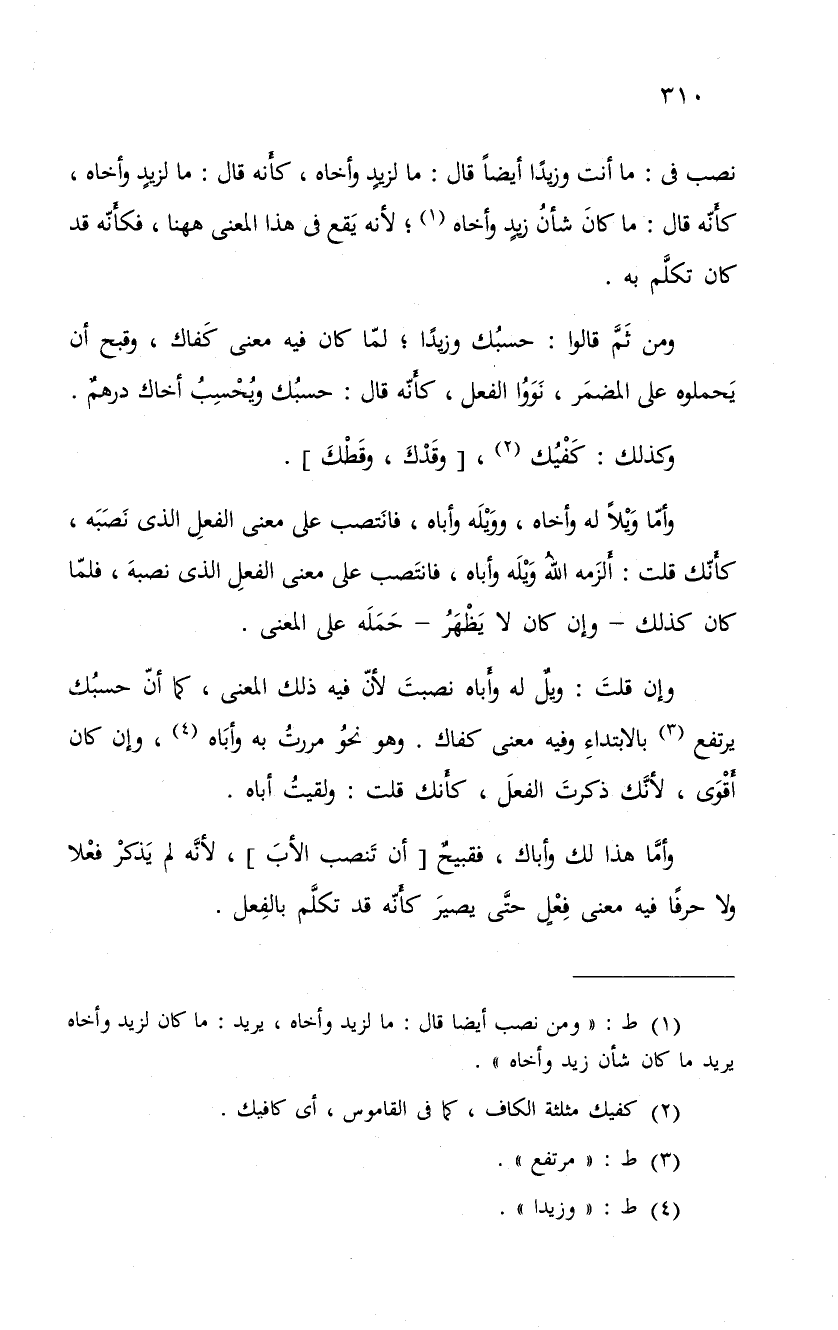 ٣١٠
نصب فى : ما أنت وزيدًا أيضاً قال : ما لزيدٍ وأخاه ، كأَنه قال : ما لزيدٍ وأخاه ،
كأَنّه قال : ما كانَ شأنُ زيدٍ وأخاه (١) ؛ لأنه يَقع فى هذا المعنى ههنا ، فكأَنّه قد
كان تكلَّم به .
ومن ثَمَّ قالوا : حسبُك وزيدًا ؛ لمّا كان فيه معنى كَفاك ، وقبح أن
يَحملوه على المضمَر ، نَوَوُا الفعل ، كأَنّه قال : حسبُك ويُحْسِبُ أخاك درهمٌ .
وكذلك : كَفْيُك (٢) ، [ وقَدْكَ ، وقَطْكَ ] .
وأمّا وَيْلاً له وأخاه ، ووَيْلَه وأباه ، فانَتصب على معنى الفعلِ الذى نَصَبَه ،
كأَنّك قلت : أَلزَمه اللهُ وَيْلَه وأباه ، فانتَصب على معنى الفعلِ الذى نصبهَ ، فلمّا
كان كذلك – وإن كان لا يَظْهَرُ – حَمَلَه على المعنى .
وإن قلتَ : ويلٌ له وأَباه نصبتَ لأنّ فيه ذلك المعنى ، كما أنّ حسبُك
يرتفع (٣) بالابتداءِ وفيه معنى كفاك . وهو نحوُ مررتُ به وأبَاه (٤) ، وإن كان
أَقْوَى ، لأنَّك ذكرتَ الفعلَ ، كأنك قلت : ولقيتُ أباه .
وأمَّا هذا لك وأباك ، فقبيحٌ [ أن تَنصب الأبَ ] ، لأنَّه لم يَذكرْ فعْلا
ولا حرفًا فيه معنى فِعْلٍ حتَّى يصيرَ كأَنّه قد تكلَّم بالفِعل .
(١) ط : « ومن نصب أيضا قال : ما لزيد وأخاه ، يريد : ما كان لزيد وأخاه
يريد ما كان شأن زيد وأخاه » .
(٢) كفيك مثلثة الكاف ، كما فى القاموس ، أى كافيك .
(٣) ط : « مرتفع » .
(٤) ط : « وزيدا » .